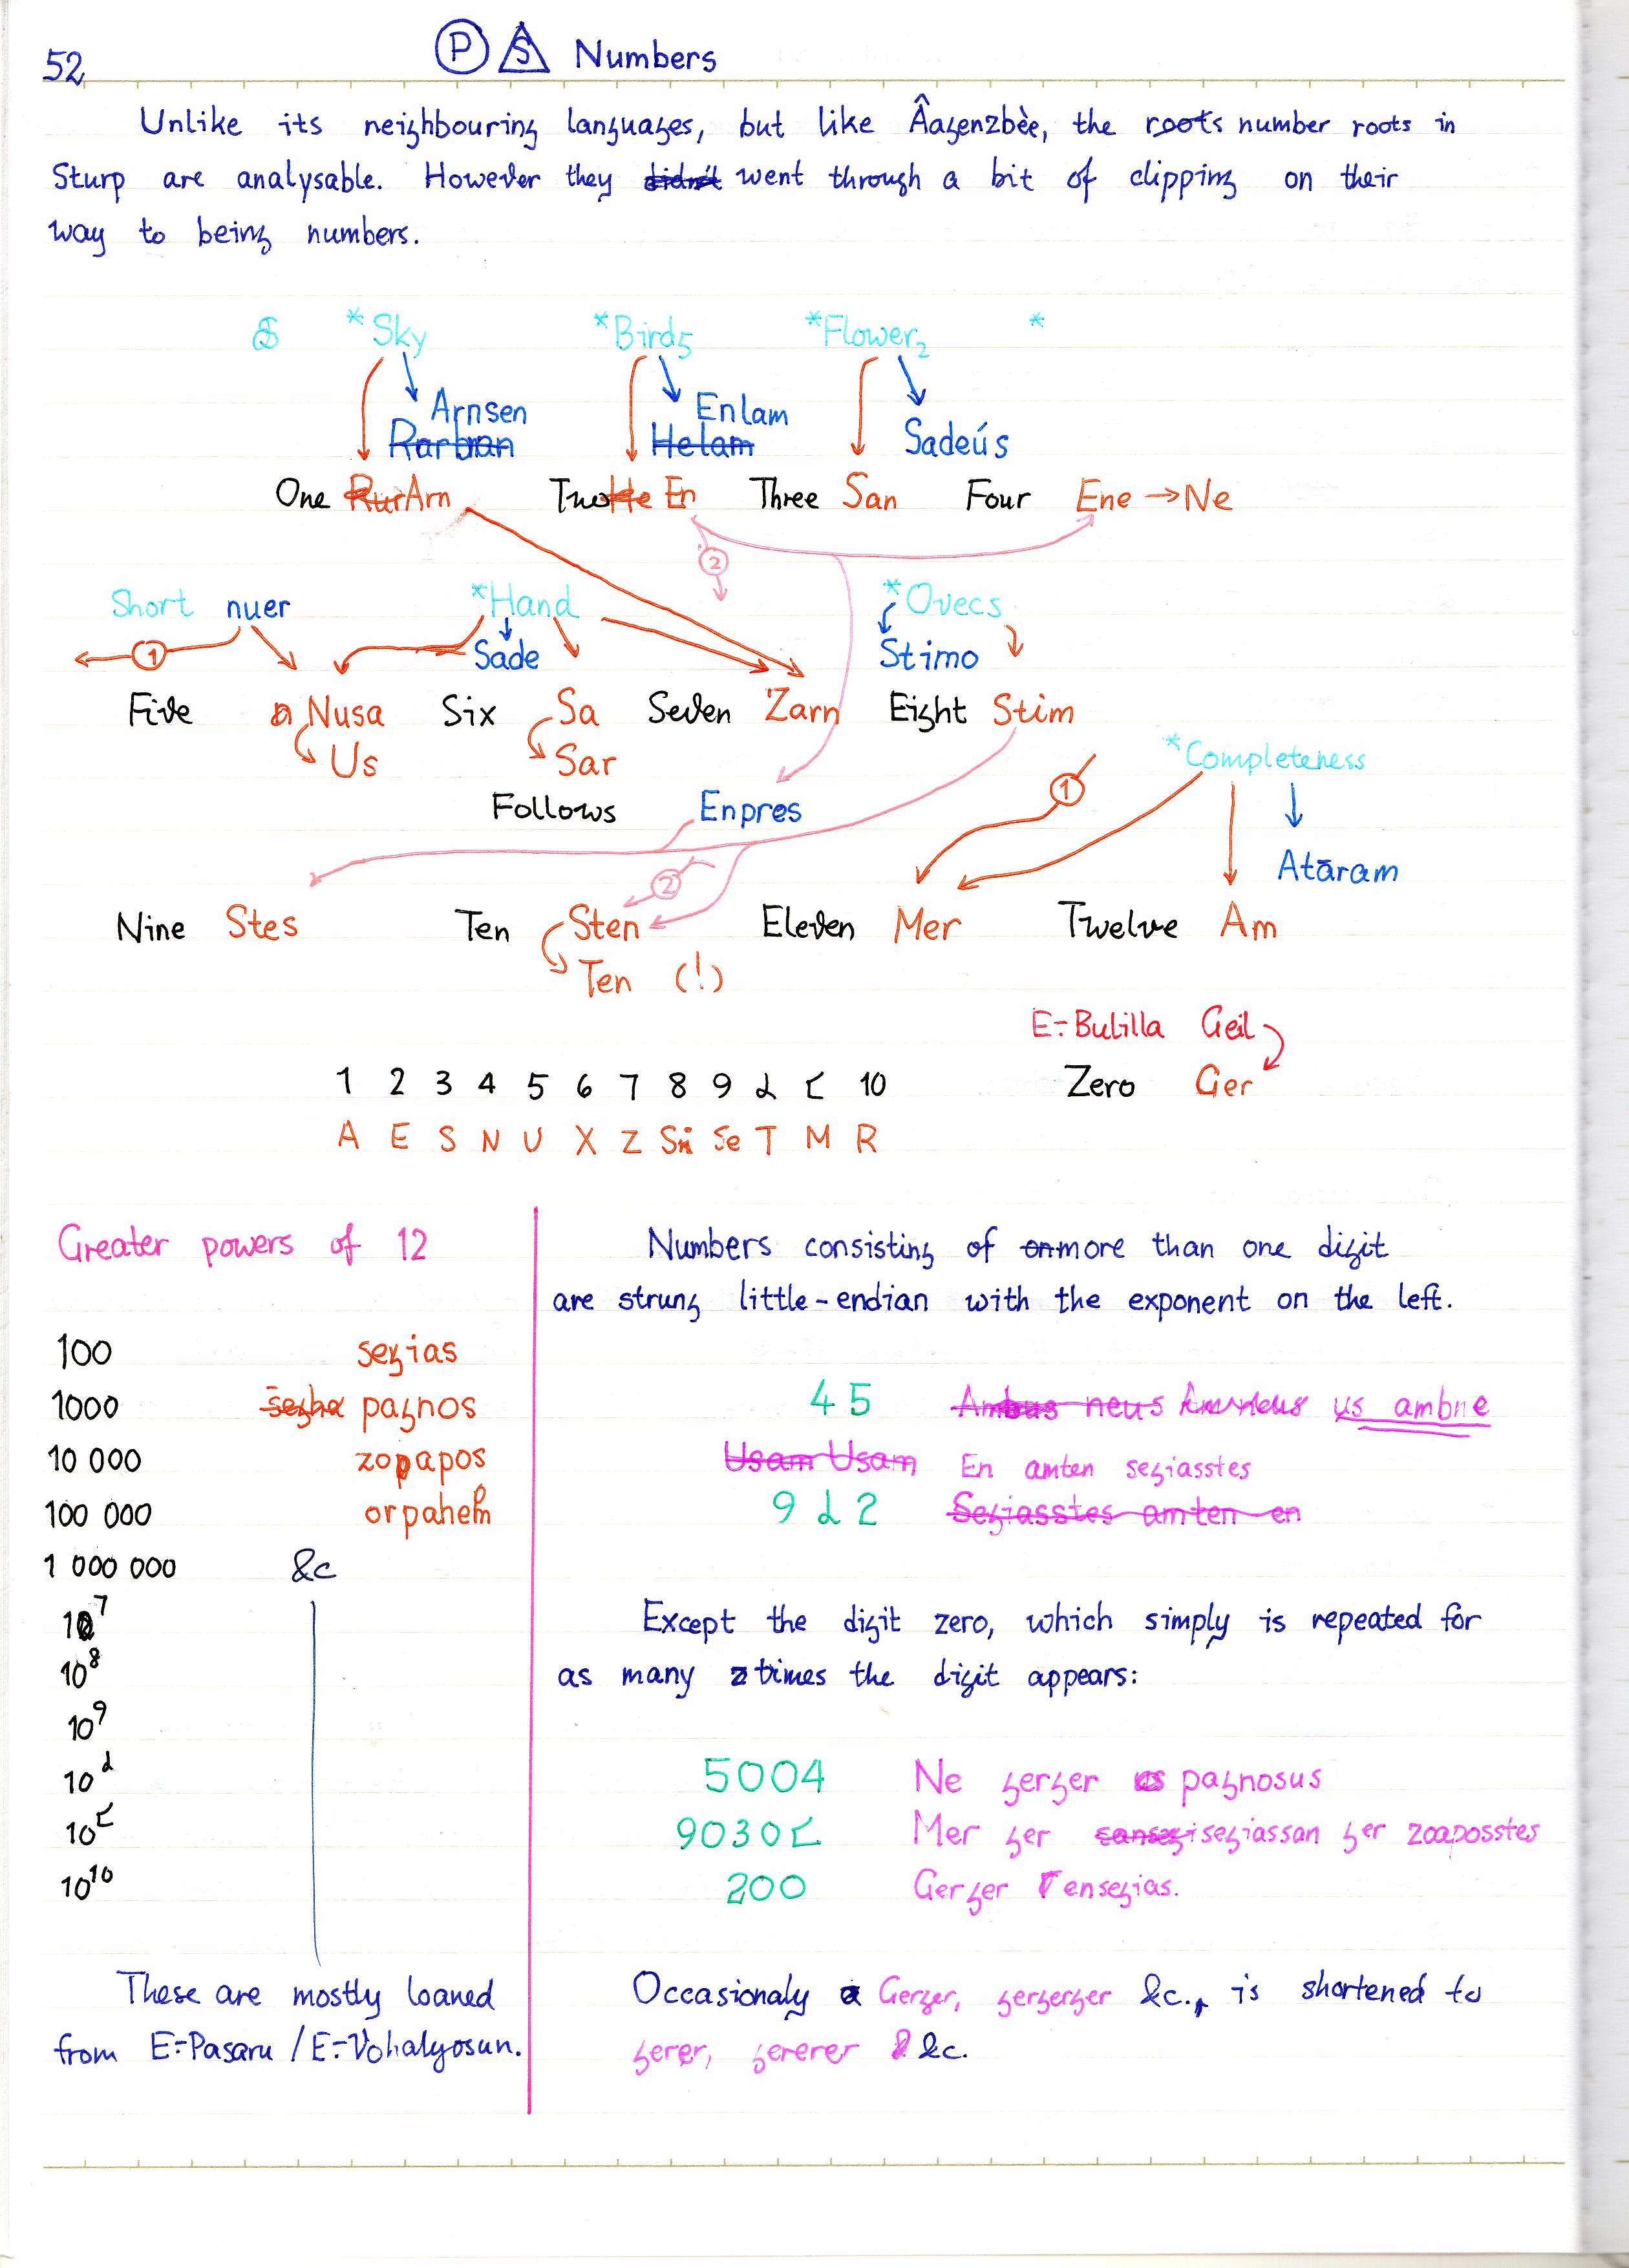 52
P S Numbers
Unlike its neighbouring languages, but like Âagenzbèe, the roots number roots in
Sturp are analysable. However they didn't went through a bit of clipping on their
way to being numbers.
*Sky *Birds *Flower₂ *
Arnsen Enlam
Rarbran Helam Sadeús
One Rur Arn Two He En Three San Four Ene → Ne
2
Short nuer *Hand *Ovecs
1 Sade Stimo
Five Nusa Six Sa Seven Zarn Eight Stim
Us Sar *Completeness
1
Follows Enpres
Atāram
2
Nine Stes Ten Sten Eleven Mer Twelve Am
Ten (!)
E-Bulilla Geil
1 2 3 4 5 6 7 8 9 ↊ ↋ 10 Zero Ger
A E S N U X Z Se T M R
Greater powers of 12
100 segias
1000 pagnos
10 000 zopapos
100 000
1 000 000 &c
10⁷
10⁸
10⁹
10^↊
10^↋
10¹⁰
These are mostly loaned
from E-Pasaru / E-Vohalyosun.
Numbers consisting of more than one digit
are strung little-endian with the exponent on the left.
45 us ambne
Usam Usam En amten segiasstes
9↊2 Segiasstes amten en
Except the digit zero, which simply is repeated for
as many times the digit appears:
5004 Ne gerger pagnosus
9030↋ Mer ger segiassan ger zoaposstes
200 Gerger Tensegias.
Occasionaly Gerger, gergerger &c., is shortened to
gerer, gererer &c.